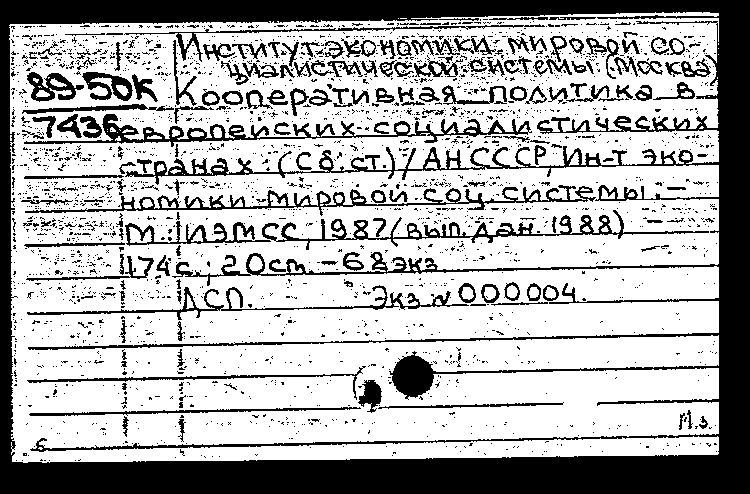 Институт экономики мировой со-
циалистической системы (Москва)
89-50К Кооперативная политика в
7436 европейских социалистических
странах : (Сб. ст.) / АН СССР, Ин-т эко-
номики мировой соц. системы. –
М. : ИЭМСС, 1987 (вып. дан. 1988) –
174 с. ; 20 см. – 68 экз.
ДСП. Экз № 000004.
М.з.
6